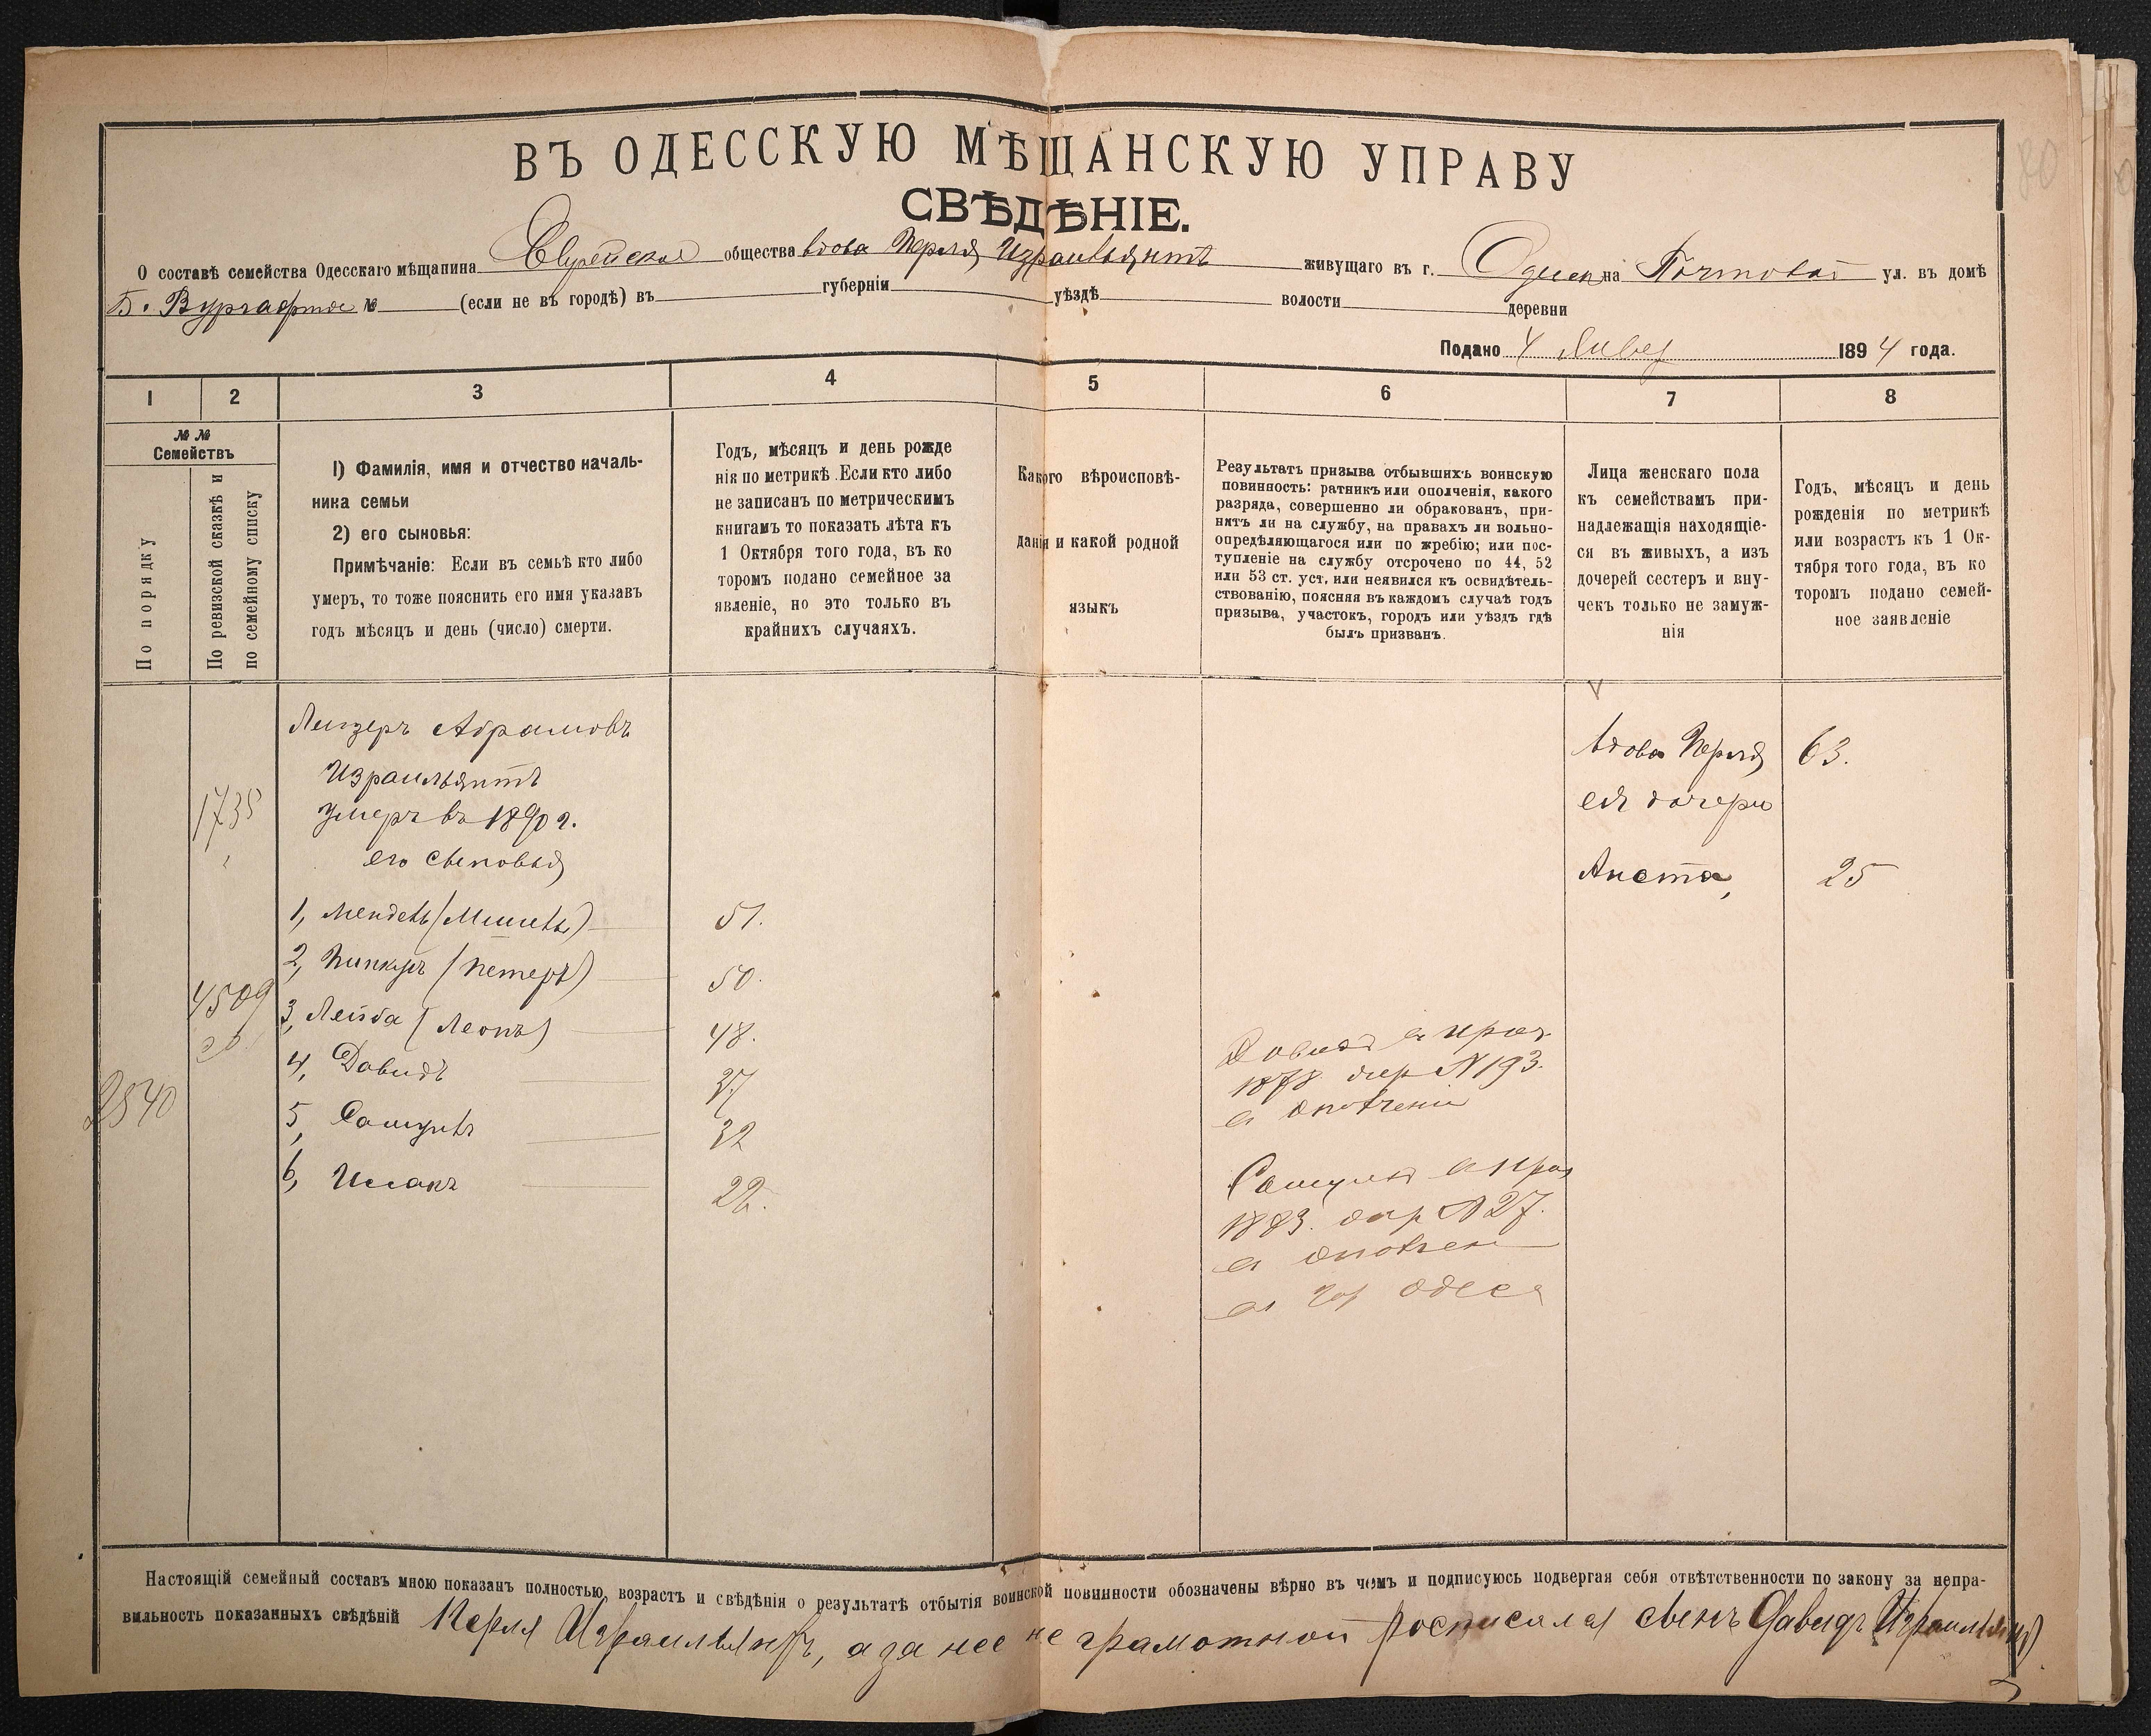 ВЪ ОДЕССКУЮ МѢЩАНСКУЮ УПРАВУ
СВѢДѢНІЕ.
О составѣ семейства Одесскаго мѣщанина Еврейскаго общества вдова Перля Израильянтъ живущаго въ г. Одессе на Почтовой ул. въ домѣ
Б. Вургафта № (если не въ городѣ) въ губерніи уѣздѣ волости деревни
Подано 4 Январ 1894 года.
1 2 3 4 5 6 7 8
№ №
Семействъ
По порядку
По ревизской сказкѣ и
по семейному списку
1) Фамилія, имя и отчество началь-
ника семьи
2) его сыновья:
Примѣчаніе: Если въ семьѣ кто либо
умеръ, то тоже пояснить его имя указавъ
годъ мѣсяцъ и день (число) смерти.
Годъ, мѣсяцъ и день рожде
нія по метрикѣ. Если кто либо
не записанъ по метрическимъ
книгамъ то показать лѣта къ
1 Октября того года, въ ко
торомъ подано семейное за
явленіе, но это только въ
крайнихъ случаяхъ.
Какого вѣроисповѣ-
данія и какой родной
языкъ
Результатъ призыва отбывшихъ воинскую
повинность: ратникъ или ополченія, какого
разряда, совершенно ли обракованъ, при-
нятъ ли на службу, на правахъ ли вольно-
опредѣляющагося или по жребію; или пос-
тупленіе на службу отсрочено по 44, 52
или 53 ст. уст. или неявился къ освидѣтель-
ствованію, поясняя въ каждомъ случаѣ годъ
призыва, участокъ, городъ или уѣздъ гдѣ
былъ призванъ.
Лица женскаго пола
къ семействамъ при-
надлежащія находящіе-
ся въ живыхъ, а изъ
дочерей сестеръ и вну-
чекъ только не замуж-
нія
Годъ, мѣсяцъ и день
рожденія по метрикѣ
или возрастъ къ 1 Ок-
тября того года, въ ко
торомъ подано семей-
ное заявленіе
Лейзеръ Абрамовъ
Израильянтъ
умеръ въ 1890 г.
его сыновья
1735
1, Мендель (Мишель) 51.
2, Пинкусъ (Петеръ) 50.
3, Лейба (Леонъ) 48.
4, Давидъ 37
5, Самуилъ 32
6, Исаакъ 22.
4509
2840
Давидъ в приз
1878 жер № 193.
в ополчении
Самуилъ в приз
1883. жер № 27.
в ополчен
в гор Одеса
вдова Перля 63.
ея дочери
Анета, 25
Настоящій семейный составъ мною показанъ полностью, возрастъ и свѣдѣнія о результатѣ отбытія воинской повинности обозначены вѣрно въ чемъ и подписуюсь подвергая себя отвѣтственности по закону за непра-
вильность показанныхъ свѣдѣній Перля Израильянтъ, а за нее не грамотной росписался сынъ Давидъ Израильянтъ